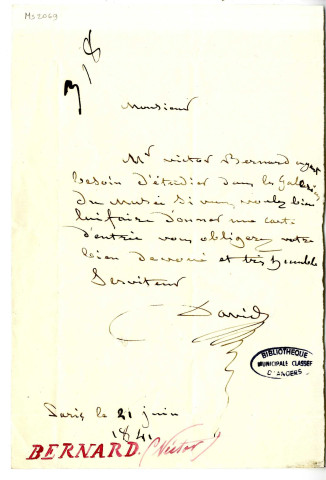 Ms 2069
Monsieur
Mr Victor Bernard ayant
besoin d'étudier dans les Galleries
du Musée si vous voulez bien
lui faire donner une carte
d'entrée vous obligerez votre
bien devoué et très humble
Serviteur
David
BIBLIOTHEQUE
MUNICIPALE CLASSÉE
D'ANGERS
Paris le 21 juin
1841
BERNARD (Victor)